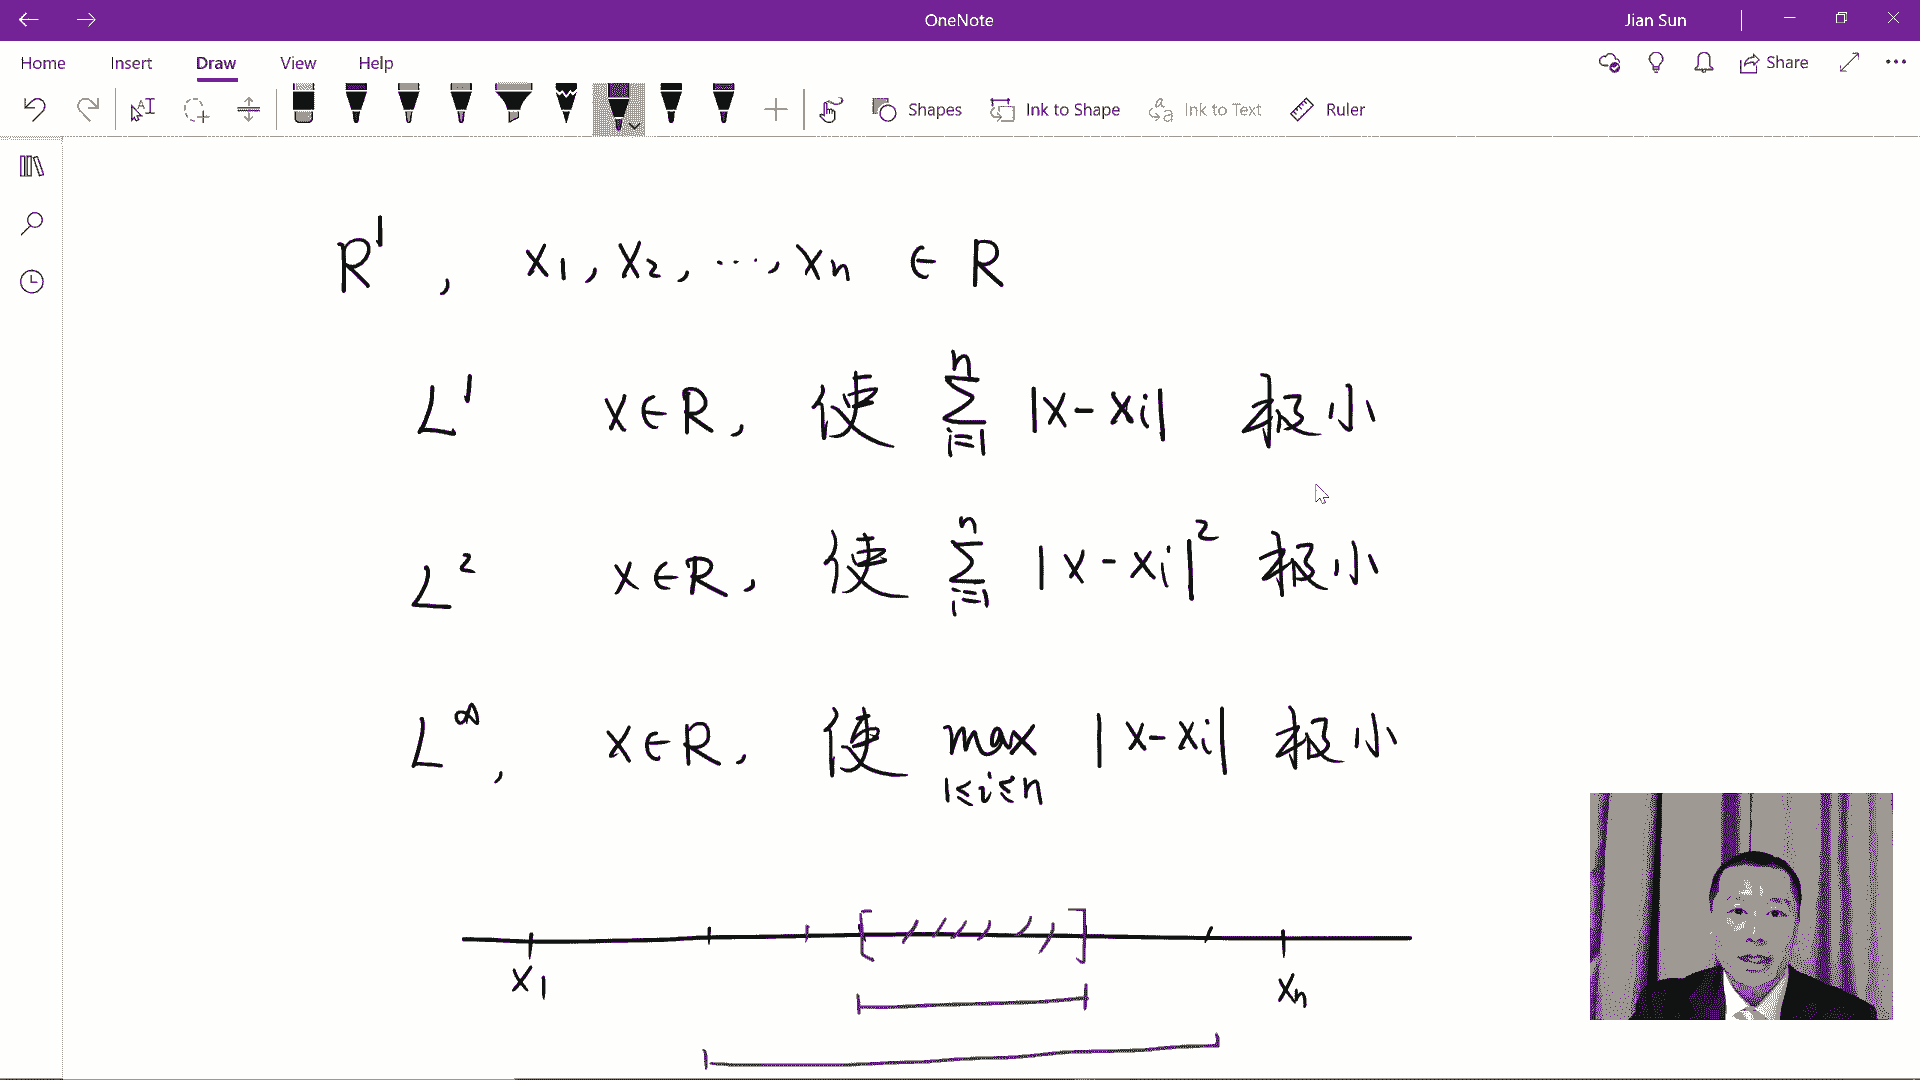 OneNote
Jian Sun
Home Insert Draw View Help
Share
Shapes Ink to Shape Ink to Text Ruler
R¹, x₁, x₂, ⋯, xₙ ∈ R
L¹ x∈R, 使 ∑ᵢ₌₁ⁿ |x-xᵢ| 极小
L² x∈R, 使 ∑ᵢ₌₁ⁿ |x-xᵢ|² 极小
L^∞, x∈R, 使 max_{1≤i≤n} |x-xᵢ| 极小
x₁ xₙ